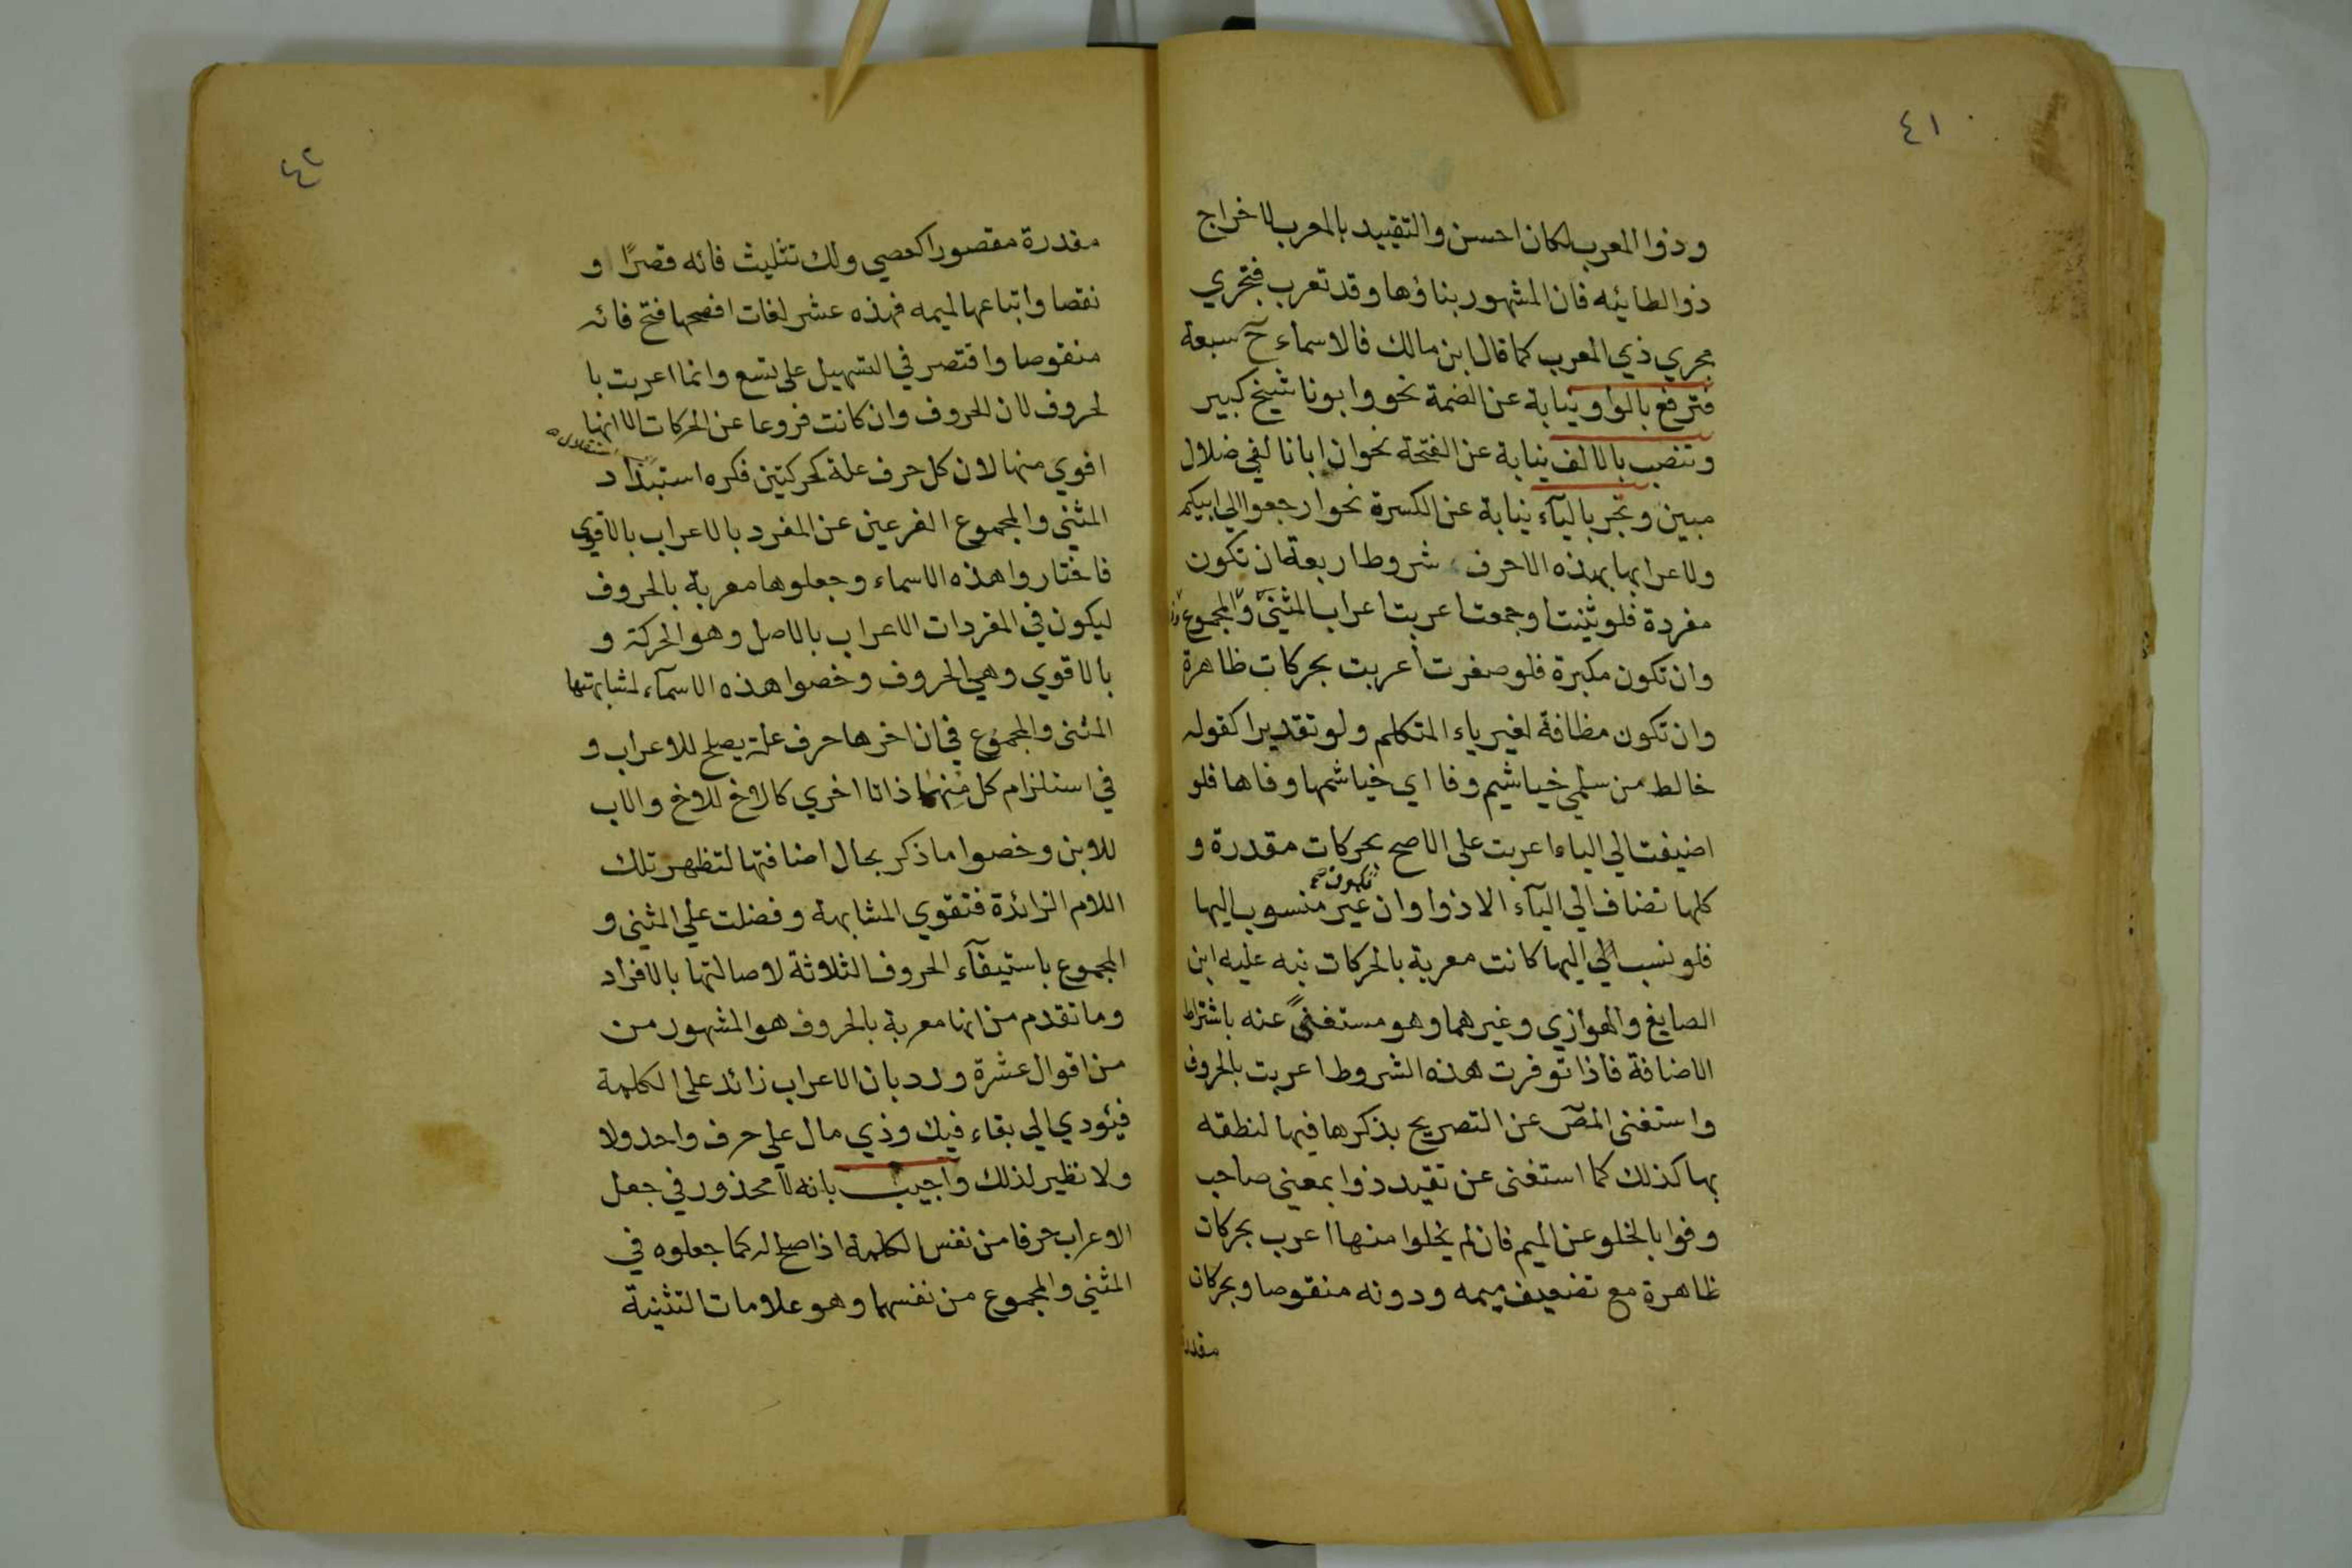 ٤١
وذوا المعرب لكان احسن والتقييد بالمعرب لاخراج
ذوا الطائيه فان المشهور بناؤها وقد تعرب فتجري
مجري ذي المعرب كما قال ابن مالك فالاسماء ح سبعة
فترفع بالواو نيابة عن الضمة نحو وابونا شيخ كبير
وتنصب بالالف نيابة عن الفتحة نحو ان ابانا لفي ضلال
مبين وتجر بالياء نيابة عن الكسرة نحو ارجعوا الي ابيكم
ولاعرابها بهذه الاحرف شروط اربعة ان تكون
مفردة فلو ثنيت او جمعت اعربت اعراب المثني والمجموع
وان تكون مكبرة فلو صغرت أعربت بحركات ظاهرة
وان تكون مظافة لغير ياء المتكلم ولو تقديرا كقوله
خالط من سلمي خياشيم وفا اي خياشمها وفاها فلو
اضيفت الي الياء اعربت على الاصح بحركات مقدرة و
كلها تضاف الي اليآء الا ذوا وان تكون غير منسوب اليها
فلو نسب الي اليها كانت معربة بالحركات نبه عليه ابن
الصايغ والهوازي وغيرهما وهو مستغنيً عنه باشتراط
الاضافة فاذا توفرت هذه الشروط اعربت بالحروف
واستغنى المص عن التصريح بذكرها فيها لنطقه
بها كذلك كما استغنى عن تقيد ذوا بمعني صاحب
وفوا بالخلو عن الميم فان لم يخلوا منها اعرب بحركات
ظاهرة مع تضعيف ميمه ودونه منقوصا وبحركات
مقدرة
٤٢
مقدرة مقصورا كعصي ولك تثليث فائه قصرًا و
نقصا واتباعها لميمه فهذه عشر لغات افصحها فتح فائه
منقوصا واقتصر في التسهيل على تسع وانما اعربت با
لحروف لان الحروف وان كانت فروعا عن الحركات الا انها
اقوي منها لان كل حرف علة كحركتين فكره استبداد
المثني والمجموع الفرعين عن المفرد بالاعراب بالاقوي
فاختاروا هذه الاسماء وجعلوها معربة بالحروف
ليكون في المفردات الاعراب بالاصل وهو الحركة و
بالاقوي وهي الحروف وخصوا هذه الاسمآء لمشابهتها
المثنى والمجموع في ان اخرها حرف علة يصلح للاعراب و
في استلزام كل منهما ذاتا اخري كالاخ للاخ والاب
للابن وخصوا ما ذكر بحال اضافتها لتظهر تلك
اللام الزائدة فتقوي المشابهة وفضلت علي المثني و
المجموع باستيفآء الحروف الثلاثة لاصالتها بالافراد
وما تقدم من انها معربة بالحروف هو المشهور من
من اقوال عشرة ورد بان الاعراب زائد على الكلمة
فيئودي الي بقاء فيك وذي مال علي حرف واحد ولا
ولا نظير لذلك واجيب بانه لا محذور في جعل
الاعراب حرفا من نفس الكلمة اذا صلح له كما جعلوه في
المثني والمجموع من نفسهما وهو علامات التثنية